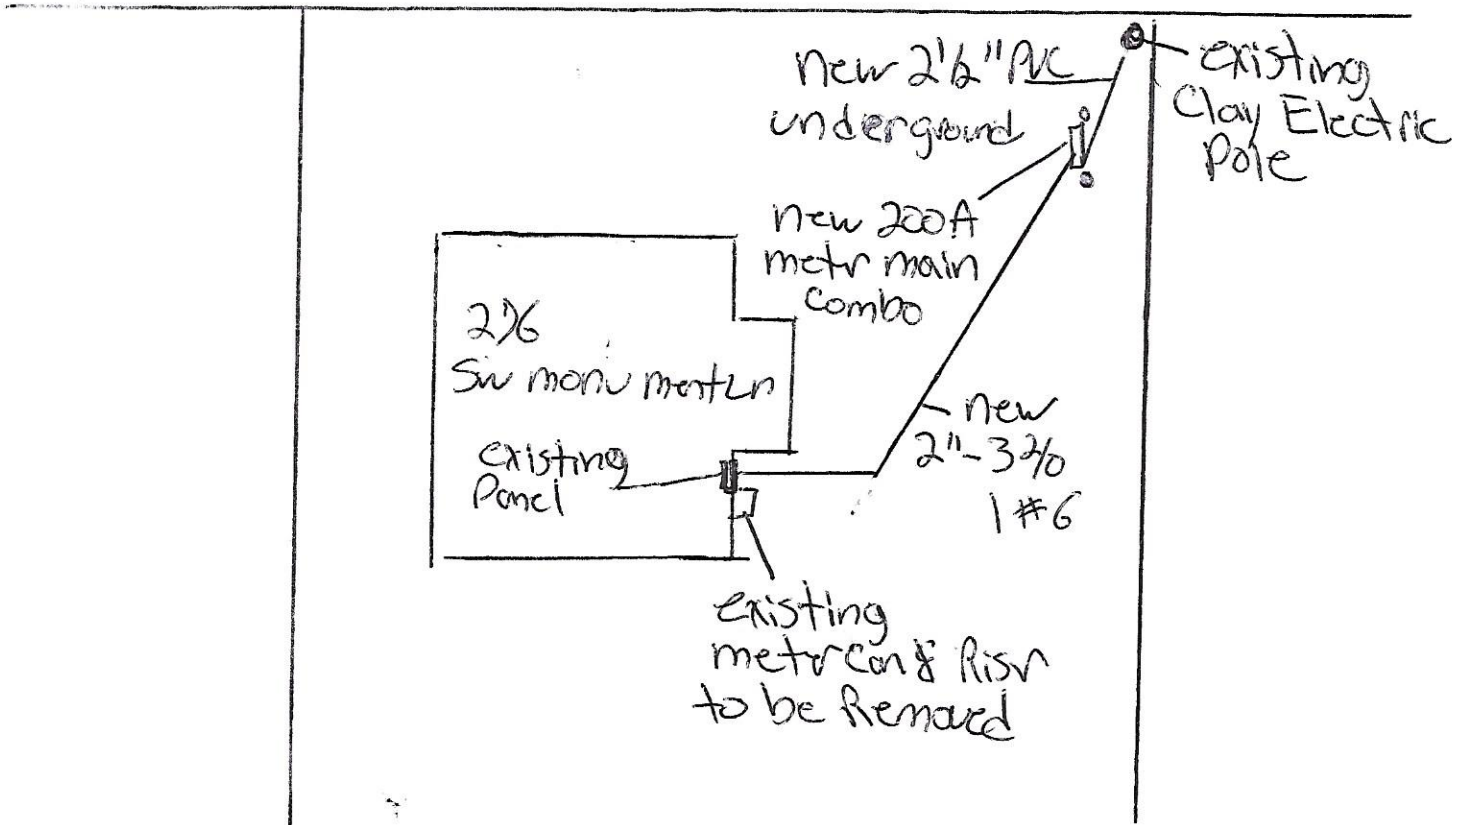 new 2½" PVC
underground
existing
Clay Electric
Pole
new 200A
metr main
combo
276
SW monumentLn
existing
Panel
new
2"-3 2/0
1 #6
existing
metrcan & Risr
to be Removed